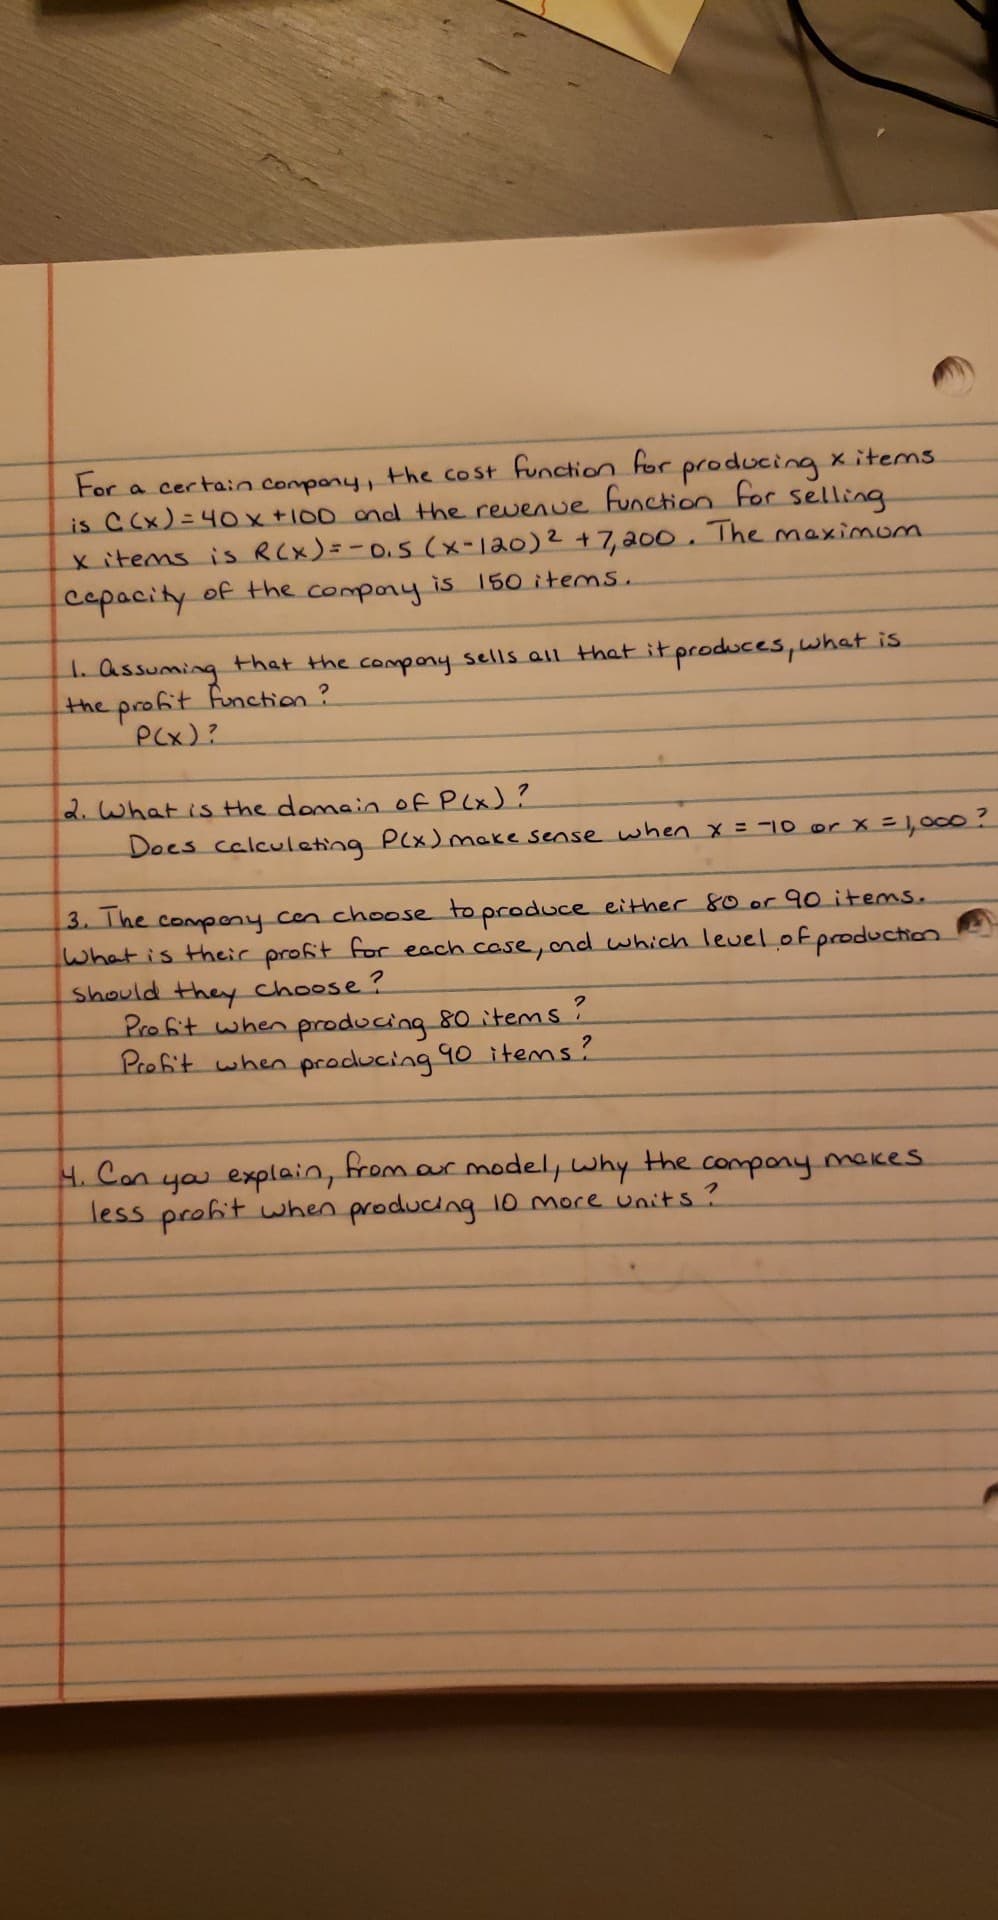 For a certain company, the cost function for producing x items
is C(x)=40x+100 and the revenue function for selling
x items is R(x)=-0.5(x-120)² +7,200. The maximum
capacity of the company is 150 items.
1. Assuming that the company sells all that it produces, what is
the profit function?
P(x)?
2. What is the domain of P(x)?
Does calculating P(x) make sense when x = -10 or x = 1,000?
3. The company can choose to produce either 80 or 90 items.
What is their profit for each case, and which level of production
should they choose?
Profit when producing 80 items?
Profit when producing 90 items?
4. Can you explain, from our model, why the company makes
less profit when producing 10 more units?